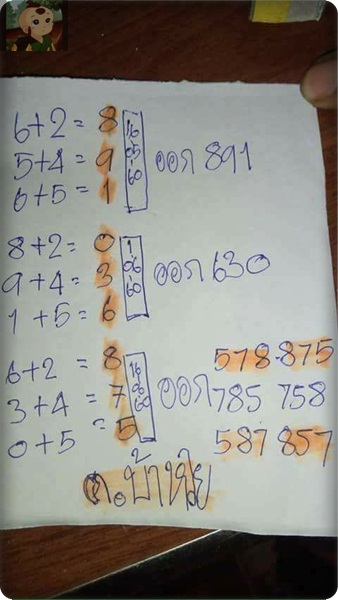 6+2 = 8
5+4 = 9 16-05-60 ออก 891
6+5 = 1
8+2 = 0
9+4 = 3 1-06-60 ออก 630
1+5 = 6
6+2 = 8 578-875
3+4 = 7 16-06-60 ออก 785 758
0+5 = 5 587 857